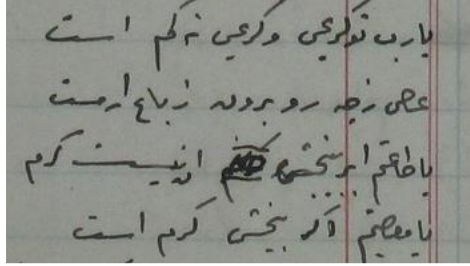 یارب تو کریمی و کریمی نه کم است
عصی زچه رو برون زباغ ارمست
با طاعتم ار ببخشی آن نیست کرم
با معصیتم اگر ببخشی کرم است